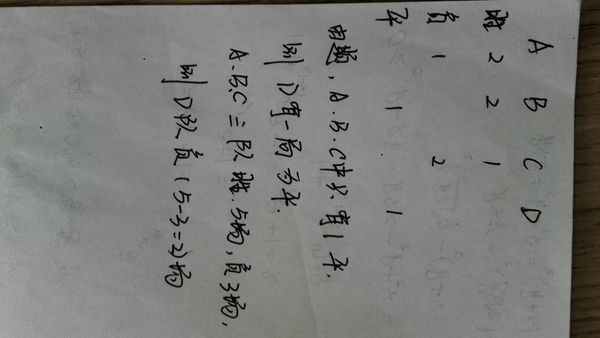 A B C D
胜 2 2 1
负 1 2
平 1 1
由题，A.B.C中只有1平.
则D有一局为平.
A.B.C三队胜.5场，负3场，
则D队负(5-3=2)场